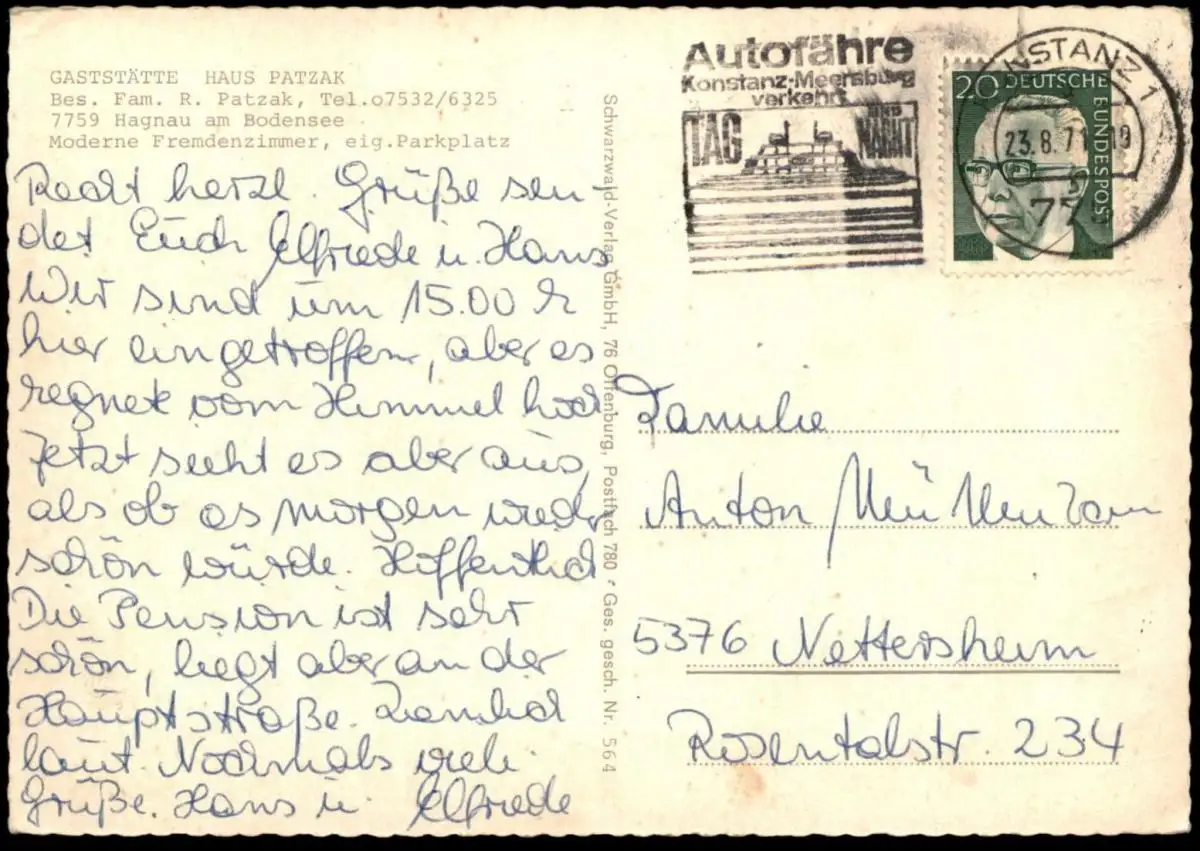 GASTSTÄTTE HAUS PATZAK
Bes. Fam. R. Patzak, Tel.o7532/6325
7759 Hagnau am Bodensee
Moderne Fremdenzimmer, eig.Parkplatz
Recht herzl. Grüße sen-
det Euch Elfriede u. Hans
Wir sind um 15.00 h
hier eingetroffen, aber es
regnete vom Himmel hoch
Jetzt sieht es aber aus,
als ob es morgen wieder
schön würde. Hoffentlich
Die Pension ist sehr
schön, liegt aber an der
Hauptstraße. Ziemlich
laut. Nochmals viele
Grüße. Hans u. Elfriede
Schwarzwald-Verlag GmbH, 76 Offenburg, Postfach 780 · Ges. gesch. Nr. 564
Autofähre
Konstanz-Meersburg
verkehrt
TAG UND NACHT
KONSTANZ 1
23.8.71 19
20 DEUTSCHE
BUNDESPOST
Familie
Anton
5376 Nettersheim
Rosentalstr. 234